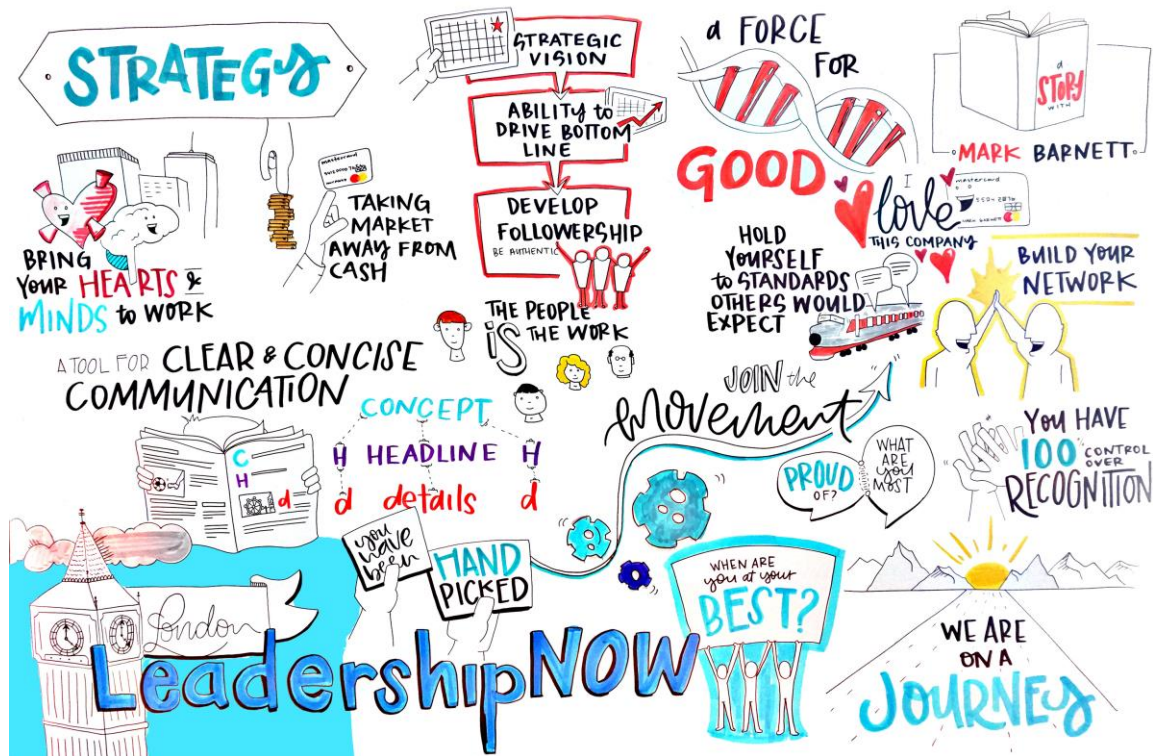 STRATEGY
BRING
YOUR HEARTS &
MINDS to WORK
mastercard
TAKING
MARKET
AWAY FROM
CASH
STRATEGIC
VISION
ABILITY to
DRIVE BOTTOM
LINE
DEVELOP
FOLLOWERSHIP
BE AUTHENTIC
THE PEOPLE
iS
THE WORK
a FORCE
FOR
GOOD
a
STORY
WITH
MARK BARNETT
I
love
THIS COMPANY
mastercard
HOLD
YOURSELF
to STANDARDS
OTHERS WOULD
EXPECT
BUILD YOUR
NETWORK
A TOOL FOR CLEAR & CONCISE
COMMUNICATION
C
H
d
CONCEPT
H HEADLINE H
d details d
JOIN the
movement
PROUD
OF?
WHAT
ARE
you
MOST
YOU HAVE
100 CONTROL
OVER
RECOGNITION
you
have
been
HAND
PICKED
London
LeadershipNOW
WHEN ARE
you at your
BEST?
WE ARE
ON A
JOURNEY